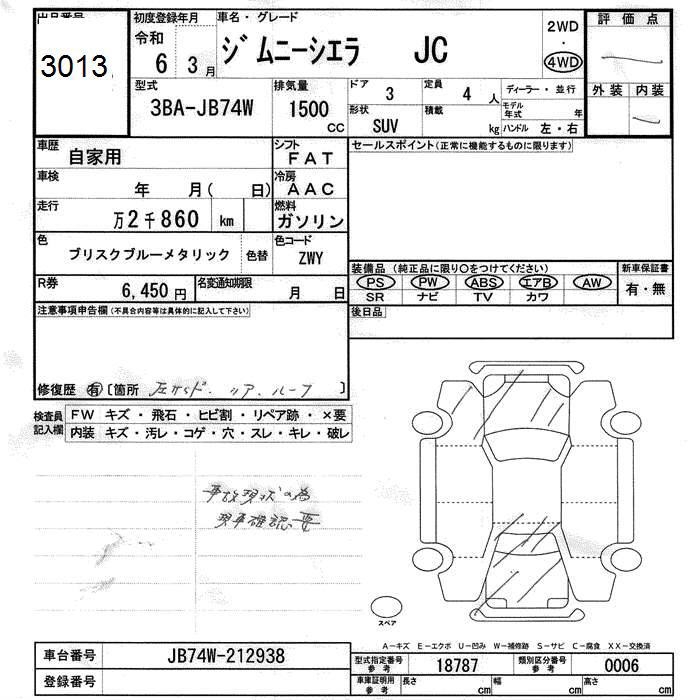 出品番号 初度登録年月 車名・グレード 2WD ・ 4WD 評価点
3013 令和 6年 3月 ジムニーシエラ JC
外装 内装
型式 3BA-JB74W 排気量 1500 cc ドア 3 定員 4 人 ディーラー・並行
形状 SUV 積載 kg モデル年式 年
ハンドル 左・右
車歴 自家用 シフト FAT セールスポイント(正常に機能するものに限ります)
車検 年 月( 日) 冷房 AAC
走行 万2千860 km 燃料 ガソリン
色 ブリスクブルーメタリック 色替 色コード ZWY
装備品 (純正品に限り○をつけてください) 新車保証書
R券 6,450円 名変通知期限 月 日
PS PW ABS エアB AW 有・無
SR ナビ TV カワ
注意事項申告欄(不具合内容等は具体的に記入して下さい) 後日品
修復歴 有 〔箇所 左サイド.リア.ルーフ 〕
検査員記入欄 FW キズ・飛石・ヒビ割・リペア跡・×要
内装 キズ・汚レ・コゲ・穴・スレ・キレ・破レ
事故現状の為
現車確認要
スペア
A-キズ E-エクボ U-凹み W-補修跡 S-サビ C-腐食 XX-交換済
車台番号 JB74W-212938 型式指定番号 参考 18787 類別区分番号 参考 0006
登録番号 車庫証明用 参考 長さ cm 幅 cm 高さ cm